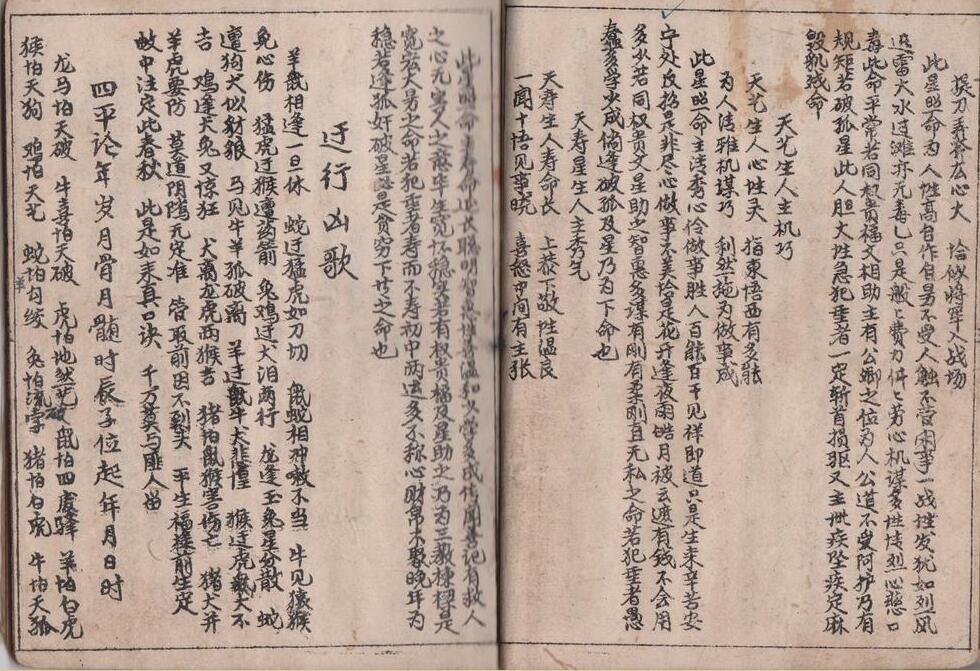 提刀弄斧公心大 恰似将军入战场
此星照命为人性高自作自易不受人触不管闲事一战性发犹如烈风
迅雷大水过滩亦无毒心只是般〻费力件〻劳心机谋多性情烈心慈口
毒此命平常若同权贵福文相助主有公卿之位为人公道不受阿护乃有
规矩若破孤星此人胆大性急犯重者一定斩首损躯又主世疾坠疾定麻
毁肌残命
天艺生人主机巧
天艺生人心性灵 指东悟西有多能
为人清雅机谋巧 利然一施为做事成
此星照命主清秀心伶做事胜人百能百干见祥即道只是生来辛苦安
宁处反招是非尽心做事不美恰是花开逢夜雨皓月被云遮有钱不会用
多水若同权贵文星助之智惠多谋有刚有柔刚直无私之命若犯重者愚
蠢多学少成倘逢破孤及星乃为下命也
天寿星生人主秀气
天寿生人寿命长 上恭下敬性温良
一闻十悟见事晓 喜怒中间有主张
此星照命主寿命延长聪明智惠慈善温和少学多成信闻喜记有救人
之心无害人之意毕生宽怀稳实若有权贵福及星助之乃为三教栋梁是
宽宏大易之命若犯重者寿而不寿初中两运多不称心财帛不聚晚年为
稳若逢孤奸破星必是贫穷下贱之命也
迂行凶歌
羊鼠相逢一旦休 蛇迂猛虎如刀切 鼠蛇相冲嗷不当 牛见猿猴
兔心伤 猛虎过猴遭药箭 兔鸡迂犬泪两行 龙逢玉兔星分散 蛇
遭狗犬似豺狼 马见牛羊孤破离 羊迂鼠牛犬悲惶 猴迂虎鼠大不
吉 鸡逢犬兔又惊狂 犬离龙虎两猴言 猪怕鼠猴害伤亡 猪犬并
羊虎要防 莫道阴骘无定准 管取前因不到头 平生福禄前生定
蚊中注定此春秋 此是如来真口诀 千万莫与匪人留
四平论年岁月骨月髓时辰子位起年月日时
龙马怕天破 牛喜怕天破 虎怕地然艺破 鼠怕四虚驿 羊怕白虎
猴怕天狗 鸡怕天艺 蛇怕勾绞 兔怕流字 猪怕白虎 牛怕天孤